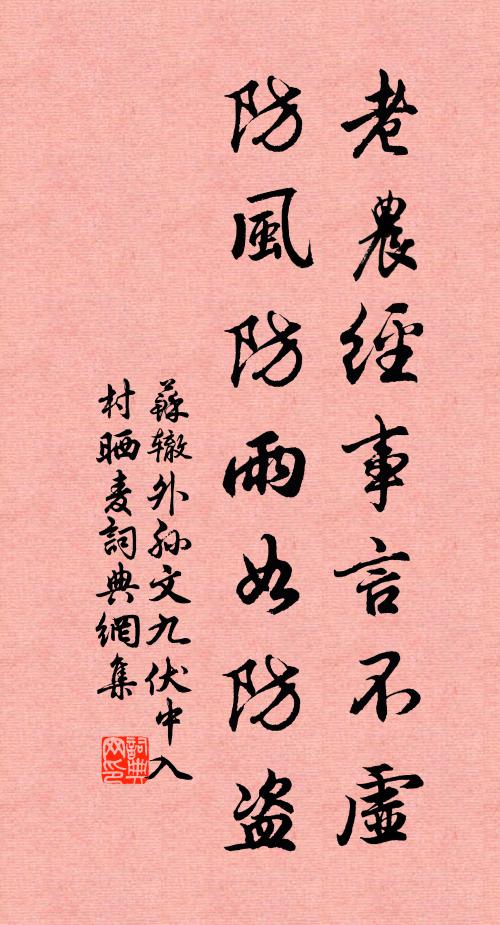 老農經事言不虛
防風防雨如防盜
蘇辙外孙文九伏中入
村晒麦詞典網集
詞典网印